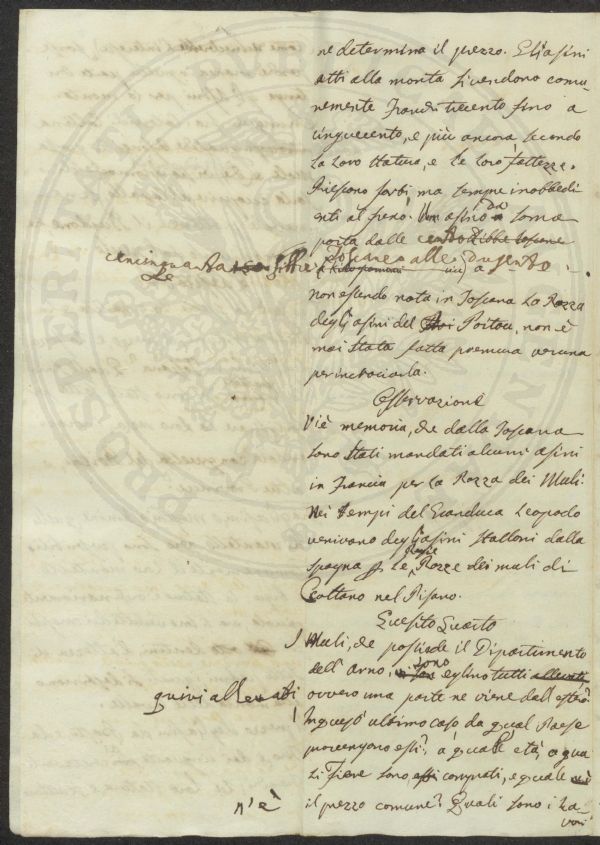 ne determina il prezzo. Gli asini
atti alla monta si vendono comu-
nemente Franchi trecento fino a
cinquecento, e più ancora secondo
la loro statura, e le loro fattezze.
Riescono forbi, ma sempre inobbedi
enti al freno. Un asino da soma
porta dalle cento Libbre toscane
cencinquanta Libbre toscane alle dugento
non essendo nota in Toscana la Razza
degli asini del Poitou, non è
mai stata fatta premura veruna
per incrociarla.
Osservazione
Vi è memoria, che dalla Toscana
sono stati mandati alcuni asini
in Francia per la Razza dei Muli.
Nei tempi del Granduca Leopodo
venivano degli asini stalloni dalla
Spagna p le Regie Razze dei muli di
Coltano nel Pisano.
Quesito Quarto
I Muli, che possiede il Dipartimento
dell'Arno, sono eglino tutti allevati,
quivi allevati
ovvero una parte ne viene dall'estero?
In quest'ultimo caso da qual Paese
provengono essi?, a quale età, a qua
li Fiere sono, essi comprati, e quale vi
n'è
il prezzo comune? Quali sono i La-
vori